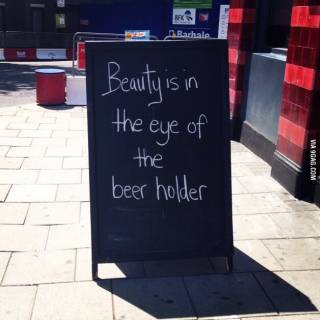 BFK
Barhale
Beauty is in
the eye of
the
beer holder
VIA 9GAG.COM